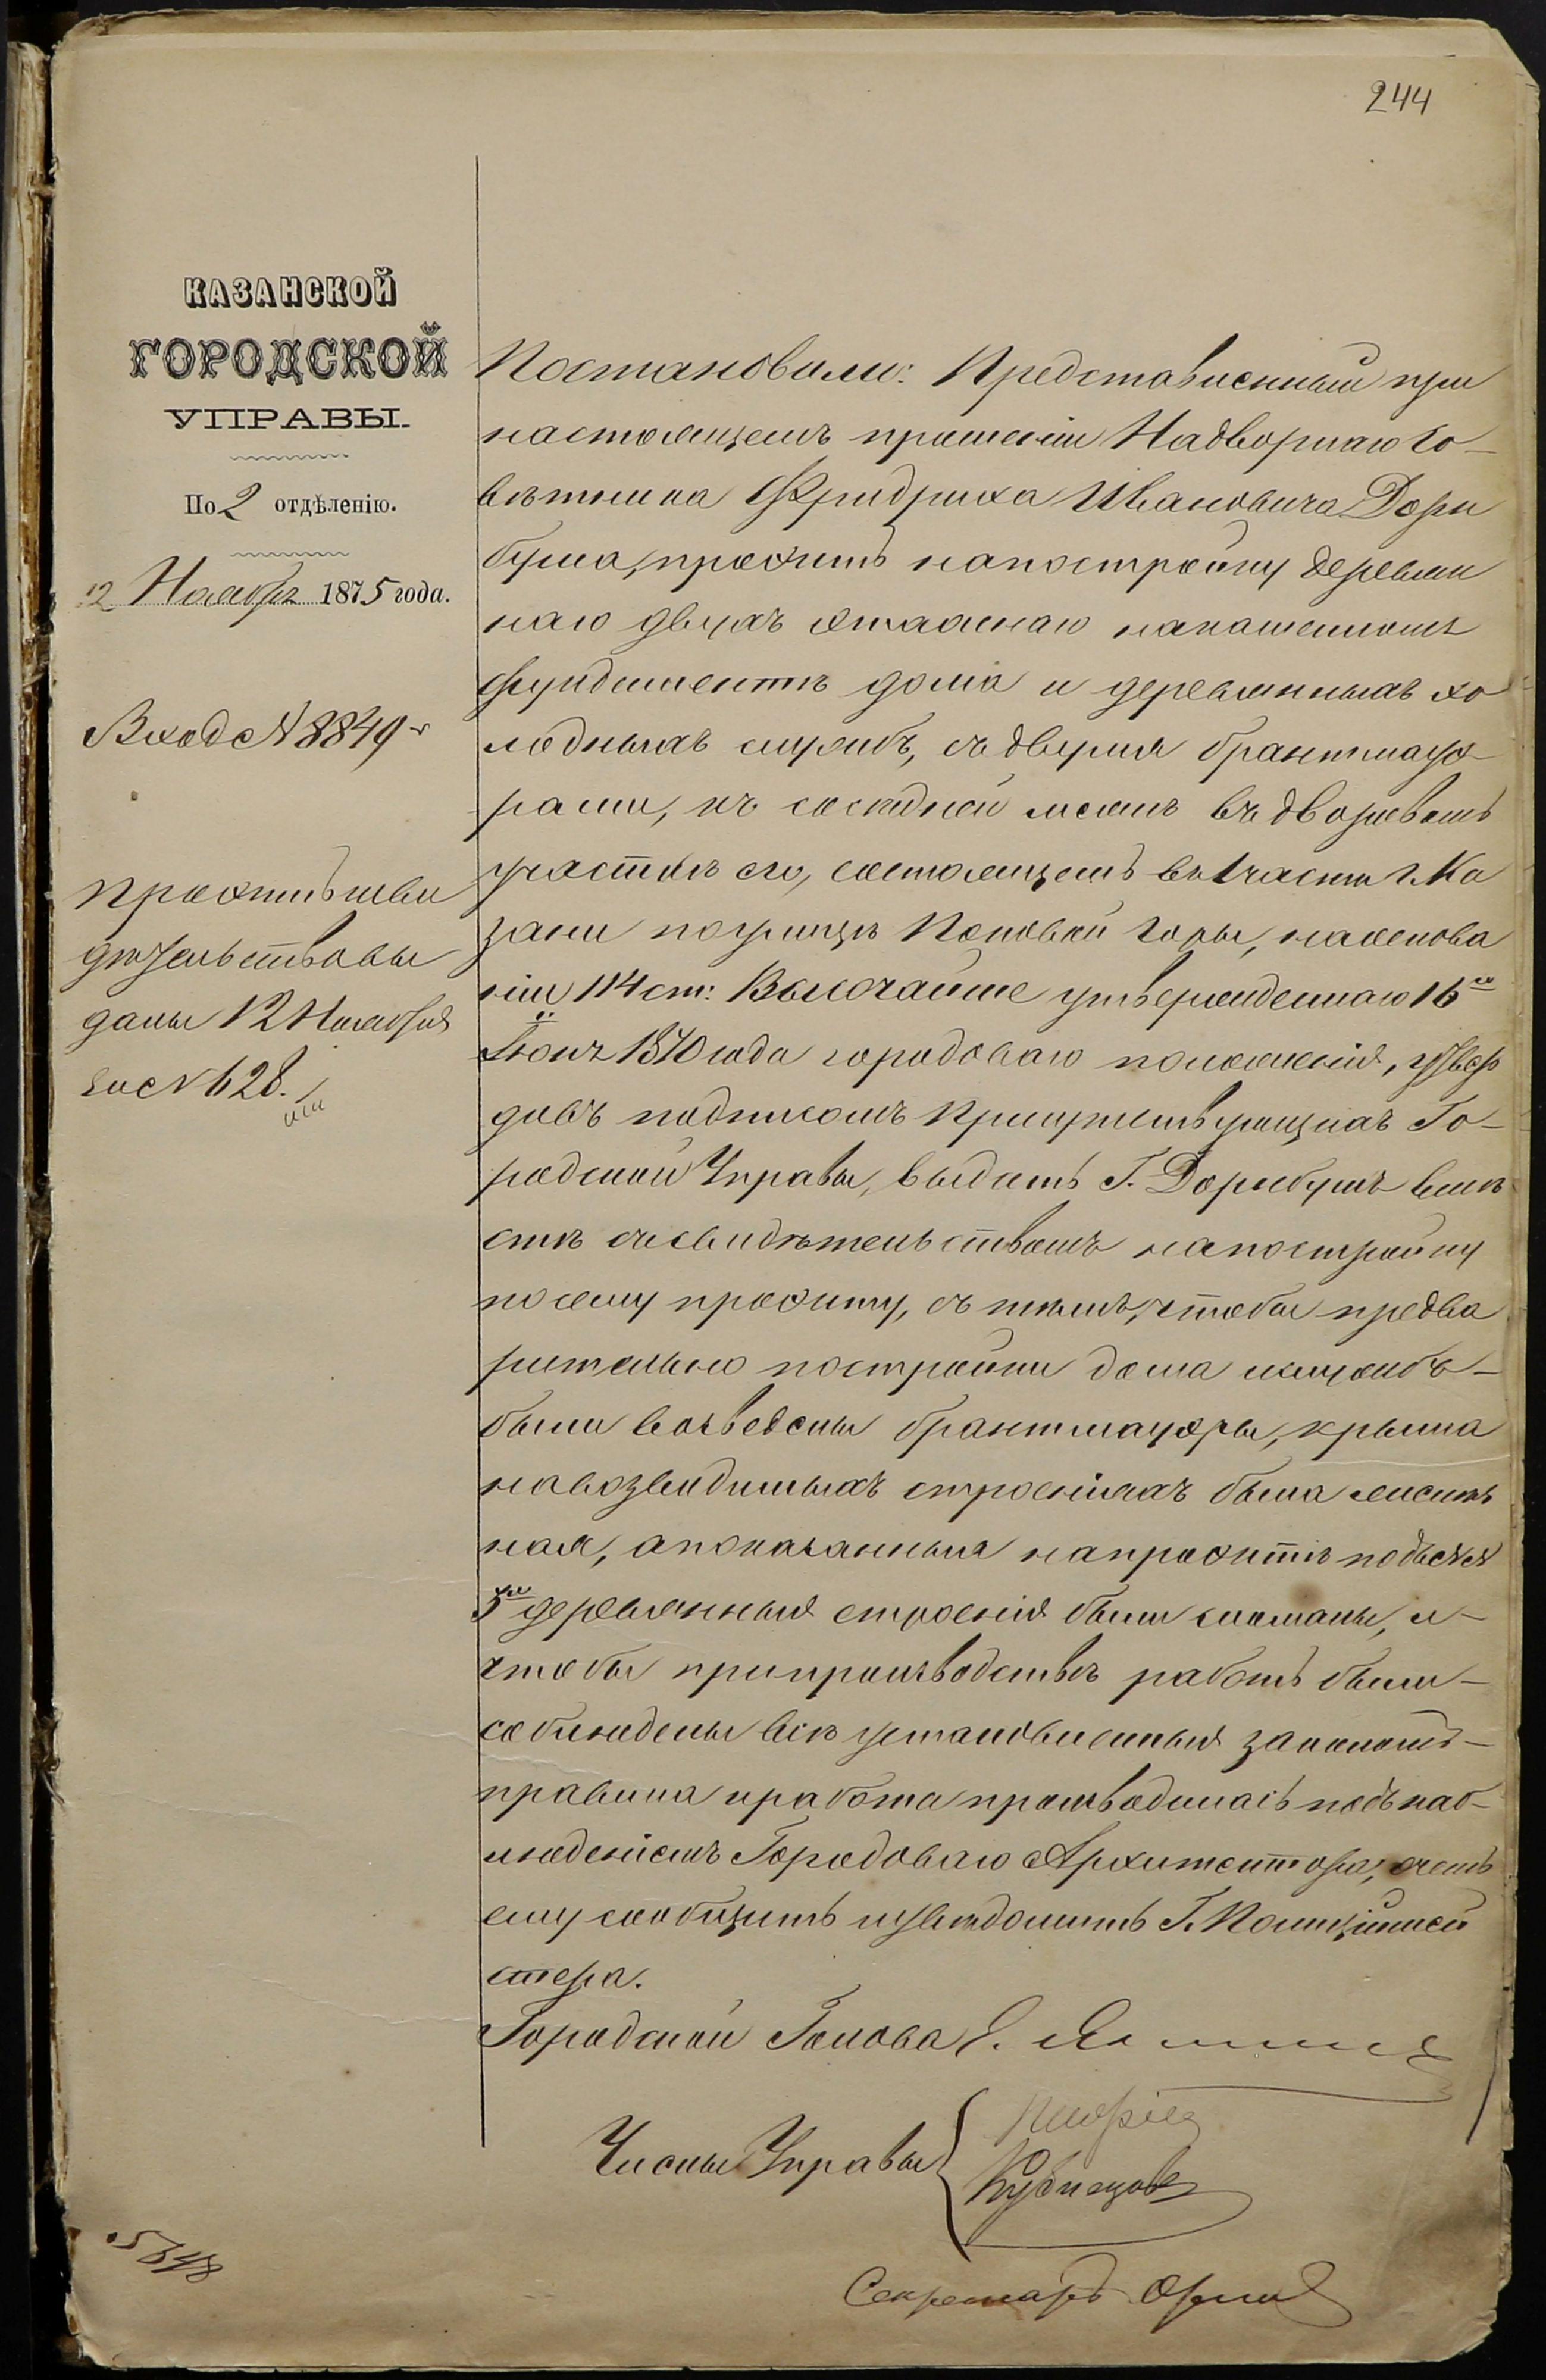 244
КАЗАНСКОЙ
ГОРОДСКОЙ
УПРАВЫ.
По 2 отдѣленію.
12 Ноября 1875 года.
Вход № 8849
Проэктъ и сви
дѣтельство вы
даны 12 Ноября
за № 628.
Постановили: Представленный при
настоящемъ прошеніи Надворнаго Со-
вѣтника Фридриха Ивановича Дорн
буша, проэктъ на постройку деревян
наго двухъ этажнаго на каменномъ
фундаментѣ дома и деревянныхъ хо
лодныхъ службъ, съ двумя брантмауэ-
рами, къ сосѣдней межѣ въ дворовомъ
участкѣ его, состоящемъ въ 1 части г. Ка
зани по улицѣ Поповой горы, на основа
ніи 114 ст: Высочайше утвержденнаго 16го
Іюня 1870 года городоваго положенія, утвер
дивъ подписомъ присутствующихъ Го-
родской Управы, выдать Г. Дорнбушъ вмѣ
стѣ съ свидѣтельствомъ на постройку
по сему проэкту, съ тѣмъ, чтобы предва
рительно постройки дома и службъ-
были возведены брантмауэры, крыша
на возводимыхъ строеніяхъ была желѣз
ная, а показанныя на проэктѣ подъ №№
деревянныя строенія были сломаны, и-
чтобы при производствѣ работъ были-
соблюдены всѣ установленныя закономъ-
правила и работа производилась подъ наб-
люденіемъ Городоваго Архитектора, о чемъ
ему сообщить и увѣдомить Г. Полиціймей
стера.
Городской Голова Е.
Члены Управы
Кузнецовъ
Секретарь
5648